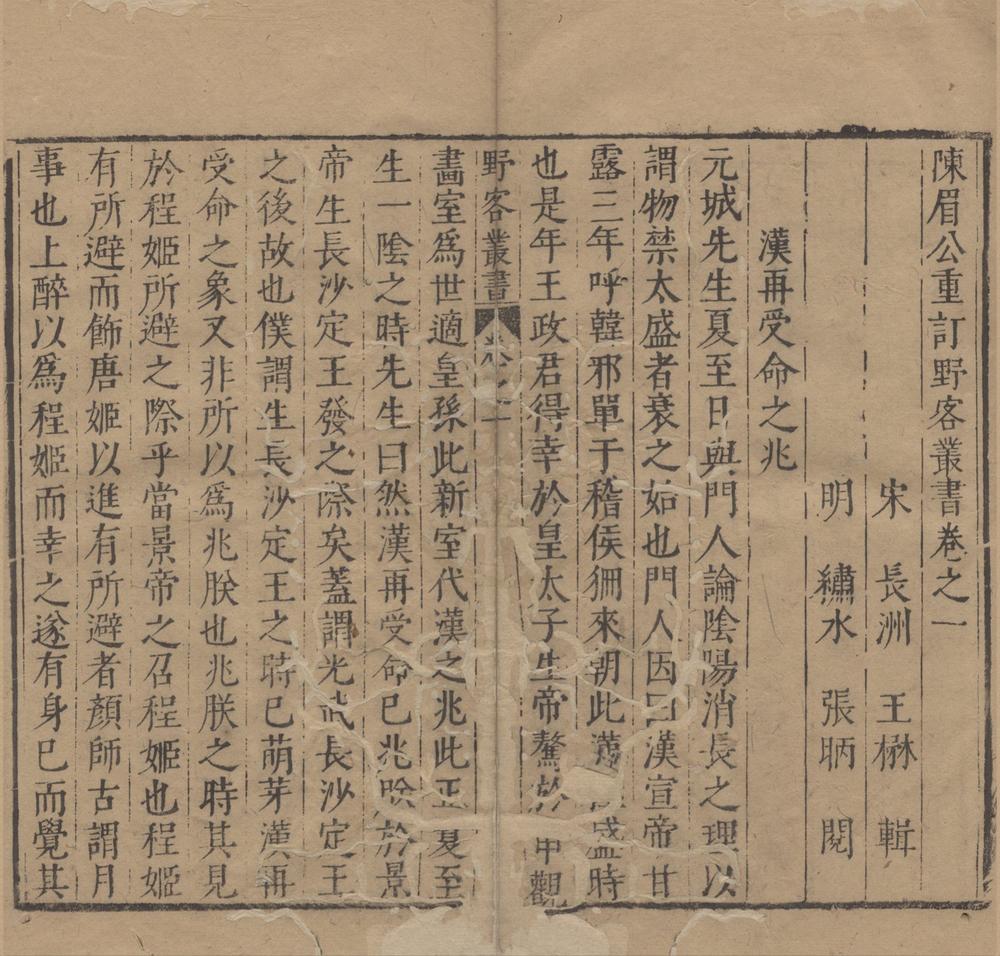 陳眉公重訂野客叢書卷之一
宋　長洲　王楙　輯
明　繡水　張昞　閱
漢再受命之兆
元城先生夏至日與門人論陰陽消長之理以
謂物禁太盛者衰之始也門人因曰漢宣帝甘
露三年呼韓邪單于稽侯狦來朝此漢盛時
也是年王政君得幸於皇太子生帝驁於甲觀
野客叢書　卷之一
畫室爲世適皇孫此新室代漢之兆此正夏至
生一陰之時先生曰然漢再受命已兆於景
帝生長沙定王發之際矣蓋謂光武長沙定王
之後故也僕謂生長沙定王之時已萌芽漢再
受命之象又非所以爲兆朕也兆朕之時其見
於程姬所避之際乎當景帝之召程姬也程姬
有所避而飾唐姬以進有所避者顏師古謂月
事也上醉以爲程姬而幸之遂有身已而覺其